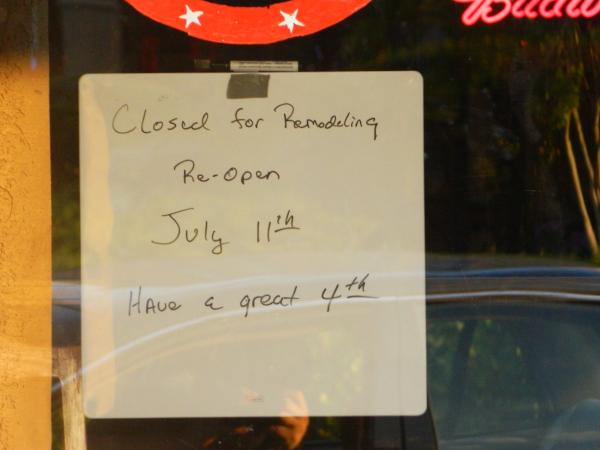 Budw
Closed for Remodeling
Re-Open
July 11th
Have a great 4th